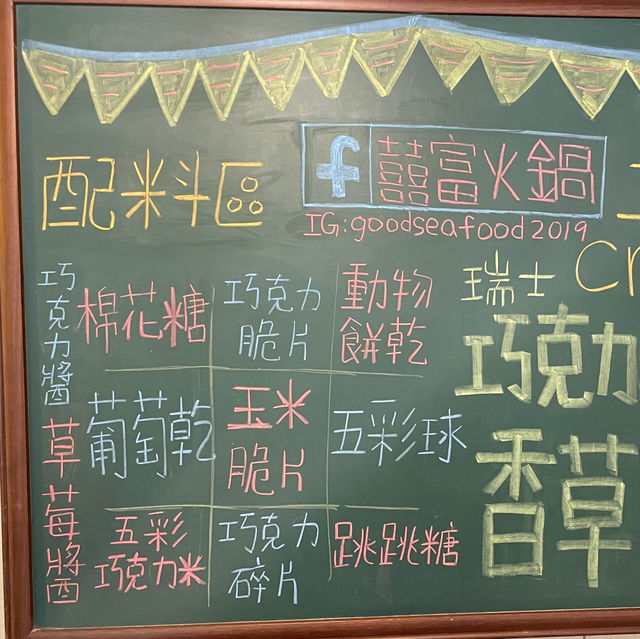 f 囍富火鍋
IG:goodseafood2019
配料區
巧克力醬
草莓醬
棉花糖
巧克力
脆片
動物
餅乾
葡萄乾
玉米
脆片
五彩球
五彩
巧克力米
巧克力
碎片
跳跳糖
瑞士
巧克力
香草
Cr